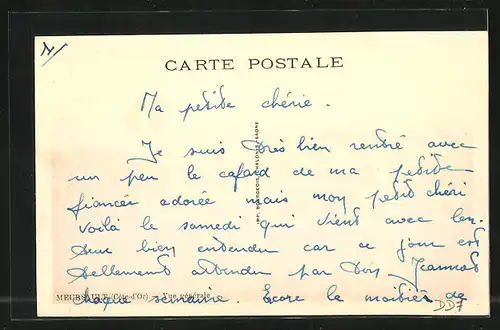 CARTE POSTALE
Ma petite chérie.
Je suis très bien rentré avec
un peu le cafard de ma petite
fiancée adorée mais mon petit chéri
voilà le samedi qui vient avec
bien entendu car ce jour est
tellement attendu par ton Jeannot
chaque semaine. la moitié de
MEURSAULT (Côte-d'Or) — Vue générale
DD7